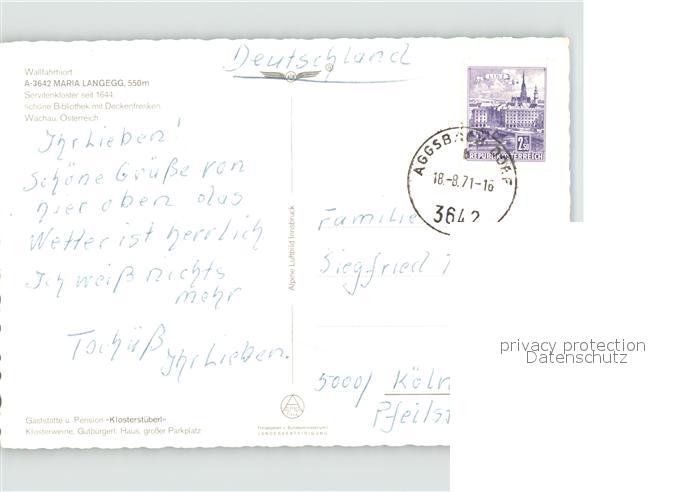 Deutschland
Wallfahrtsort
A-3642 MARIA LANGEGG, 550m
Servitenkloster seit 1644,
schöne Bibliothek mit Deckenfresken.
Wachau, Österreich
Ihr Lieben!
Schöne Grüße von
hier oben das
Wetter ist herrlich
Ich weiß nichts
mehr
Tschüß
Ihr Lieben.
Alpine Luftbild Innsbruck
LINZ
2.50
REPUBLIK ÖSTERREICH
AGGSBACH-DORF
18.-8.71-16
3642
Familie
Siegfried
5000/ Köln
Pfeils
privacy protection
Datenschutz
Gaststätte u. Pension «Klosterstüberl»
Klosterweine, Gutbürgerl. Haus, großer Parkplatz
LANDESVERTEIDIGUNG